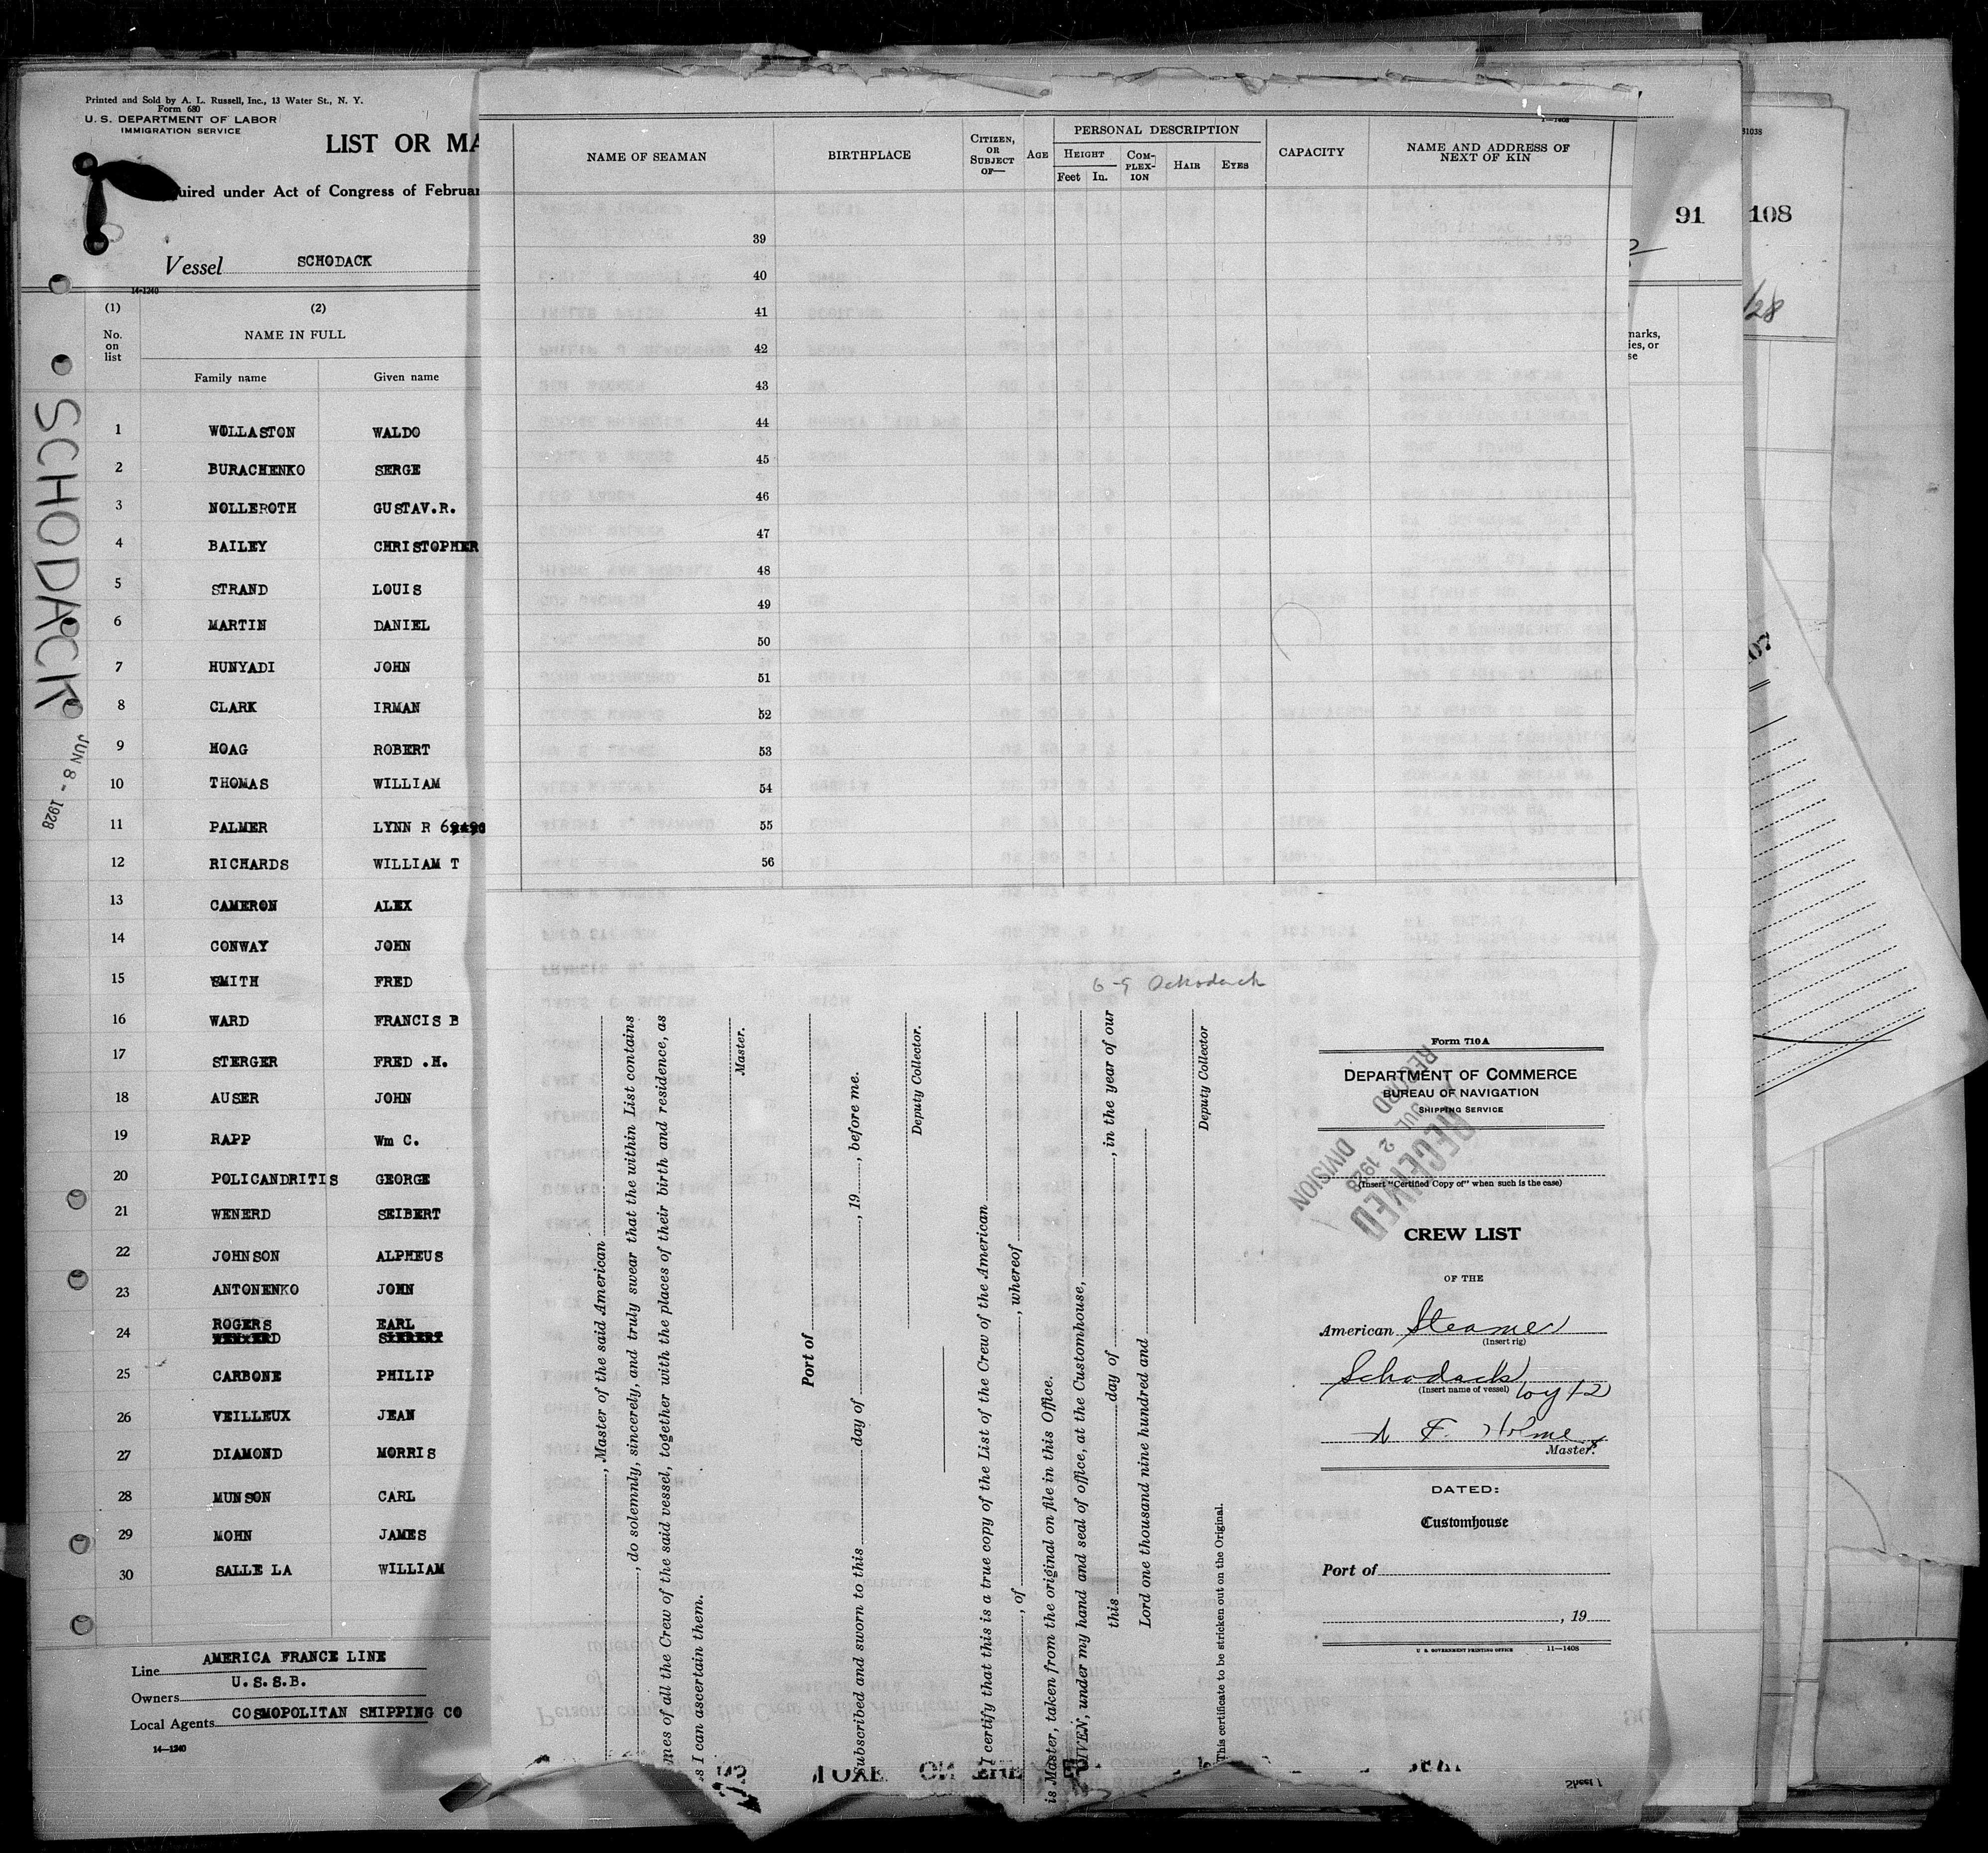 Printed and Sold by A. L. Russell, Inc., 13 Water St., N. Y.
Form 680
U. S. DEPARTMENT OF LABOR
IMMIGRATION SERVICE
LIST OR MA
uired under Act of Congress of Februar
Vessel SCHODACK
14-1240
(1) (2)
No. on list NAME IN FULL
Family name Given name
1 WOLLASTON WALDO
2 BURACHENKO SERGE
3 NOLLEROTH GUSTAV.R.
4 BAILEY CHRISTOPHER
5 STRAND LOUIS
6 MARTIN DANIEL
7 HUNYADI JOHN
8 CLARK IRMAN
9 HOAG ROBERT
10 THOMAS WILLIAM
11 PALMER LYNN R
12 RICHARDS WILLIAM T
13 CAMERON ALEX
14 CONWAY JOHN
15 SMITH FRED
16 WARD FRANCIS B
17 STERGER FRED .H.
18 AUSER JOHN
19 RAPP Wm C.
20 POLICANDRITIS GEORGE
21 WENERD SEIBERT
22 JOHNSON ALPHEUS
23 ANTONENKO JOHN
24 ROGERS EARL
25 CARBONE PHILIP
26 VEILLEUX JEAN
27 DIAMOND MORRIS
28 MUNSON CARL
29 MOHN JAMES
30 SALLE LA WILLIAM
Line AMERICA FRANCE LINE
Owners U.S.S.B.
Local Agents COSMOPOLITAN SHIPPING CO
14—1240
SCHODACK
JUN 8 - 1928
NAME OF SEAMAN
BIRTHPLACE
CITIZEN, OR SUBJECT OF—
AGE
PERSONAL DESCRIPTION
HEIGHT
Feet In.
COM-PLEX-ION
HAIR
EYES
CAPACITY
NAME AND ADDRESS OF NEXT OF KIN
39
40
41
42
43
44
45
46
47
48
49
50
51
52
53
54
55
56
, Master of the said American
, do solemnly, sincerely, and truly swear that the within List contains
mes of all the Crew of the said vessel, together with the places of their birth and residence, as
s I can ascertain them.
Master.
Port of
Subscribed and sworn to this day of , 19 , before me.
Deputy Collector.
I certify that this is a true copy of the List of the Crew of the American
, of , whereof
is Master, taken from the original on file in this Office.
GIVEN, under my hand and seal of office, at the Customhouse,
this day of , in the year of our
Lord one thousand nine hundred and
Deputy Collector
This certificate to be stricken out on the Original.
Form 710A
DEPARTMENT OF COMMERCE
BUREAU OF NAVIGATION
SHIPPING SERVICE
RECEIVED
JUL 2 1928
RECORD DIVISION
(Insert "Certified Copy of" when such is the case)
CREW LIST
OF THE
American Steamer
(Insert rig)
Schodack
(Insert name of vessel)
Master.
DATED:
Customhouse
Port of
, 19
U. S. GOVERNMENT PRINTING OFFICE 11—1408
Sheet 1
91
108
narks,
ies, or
se